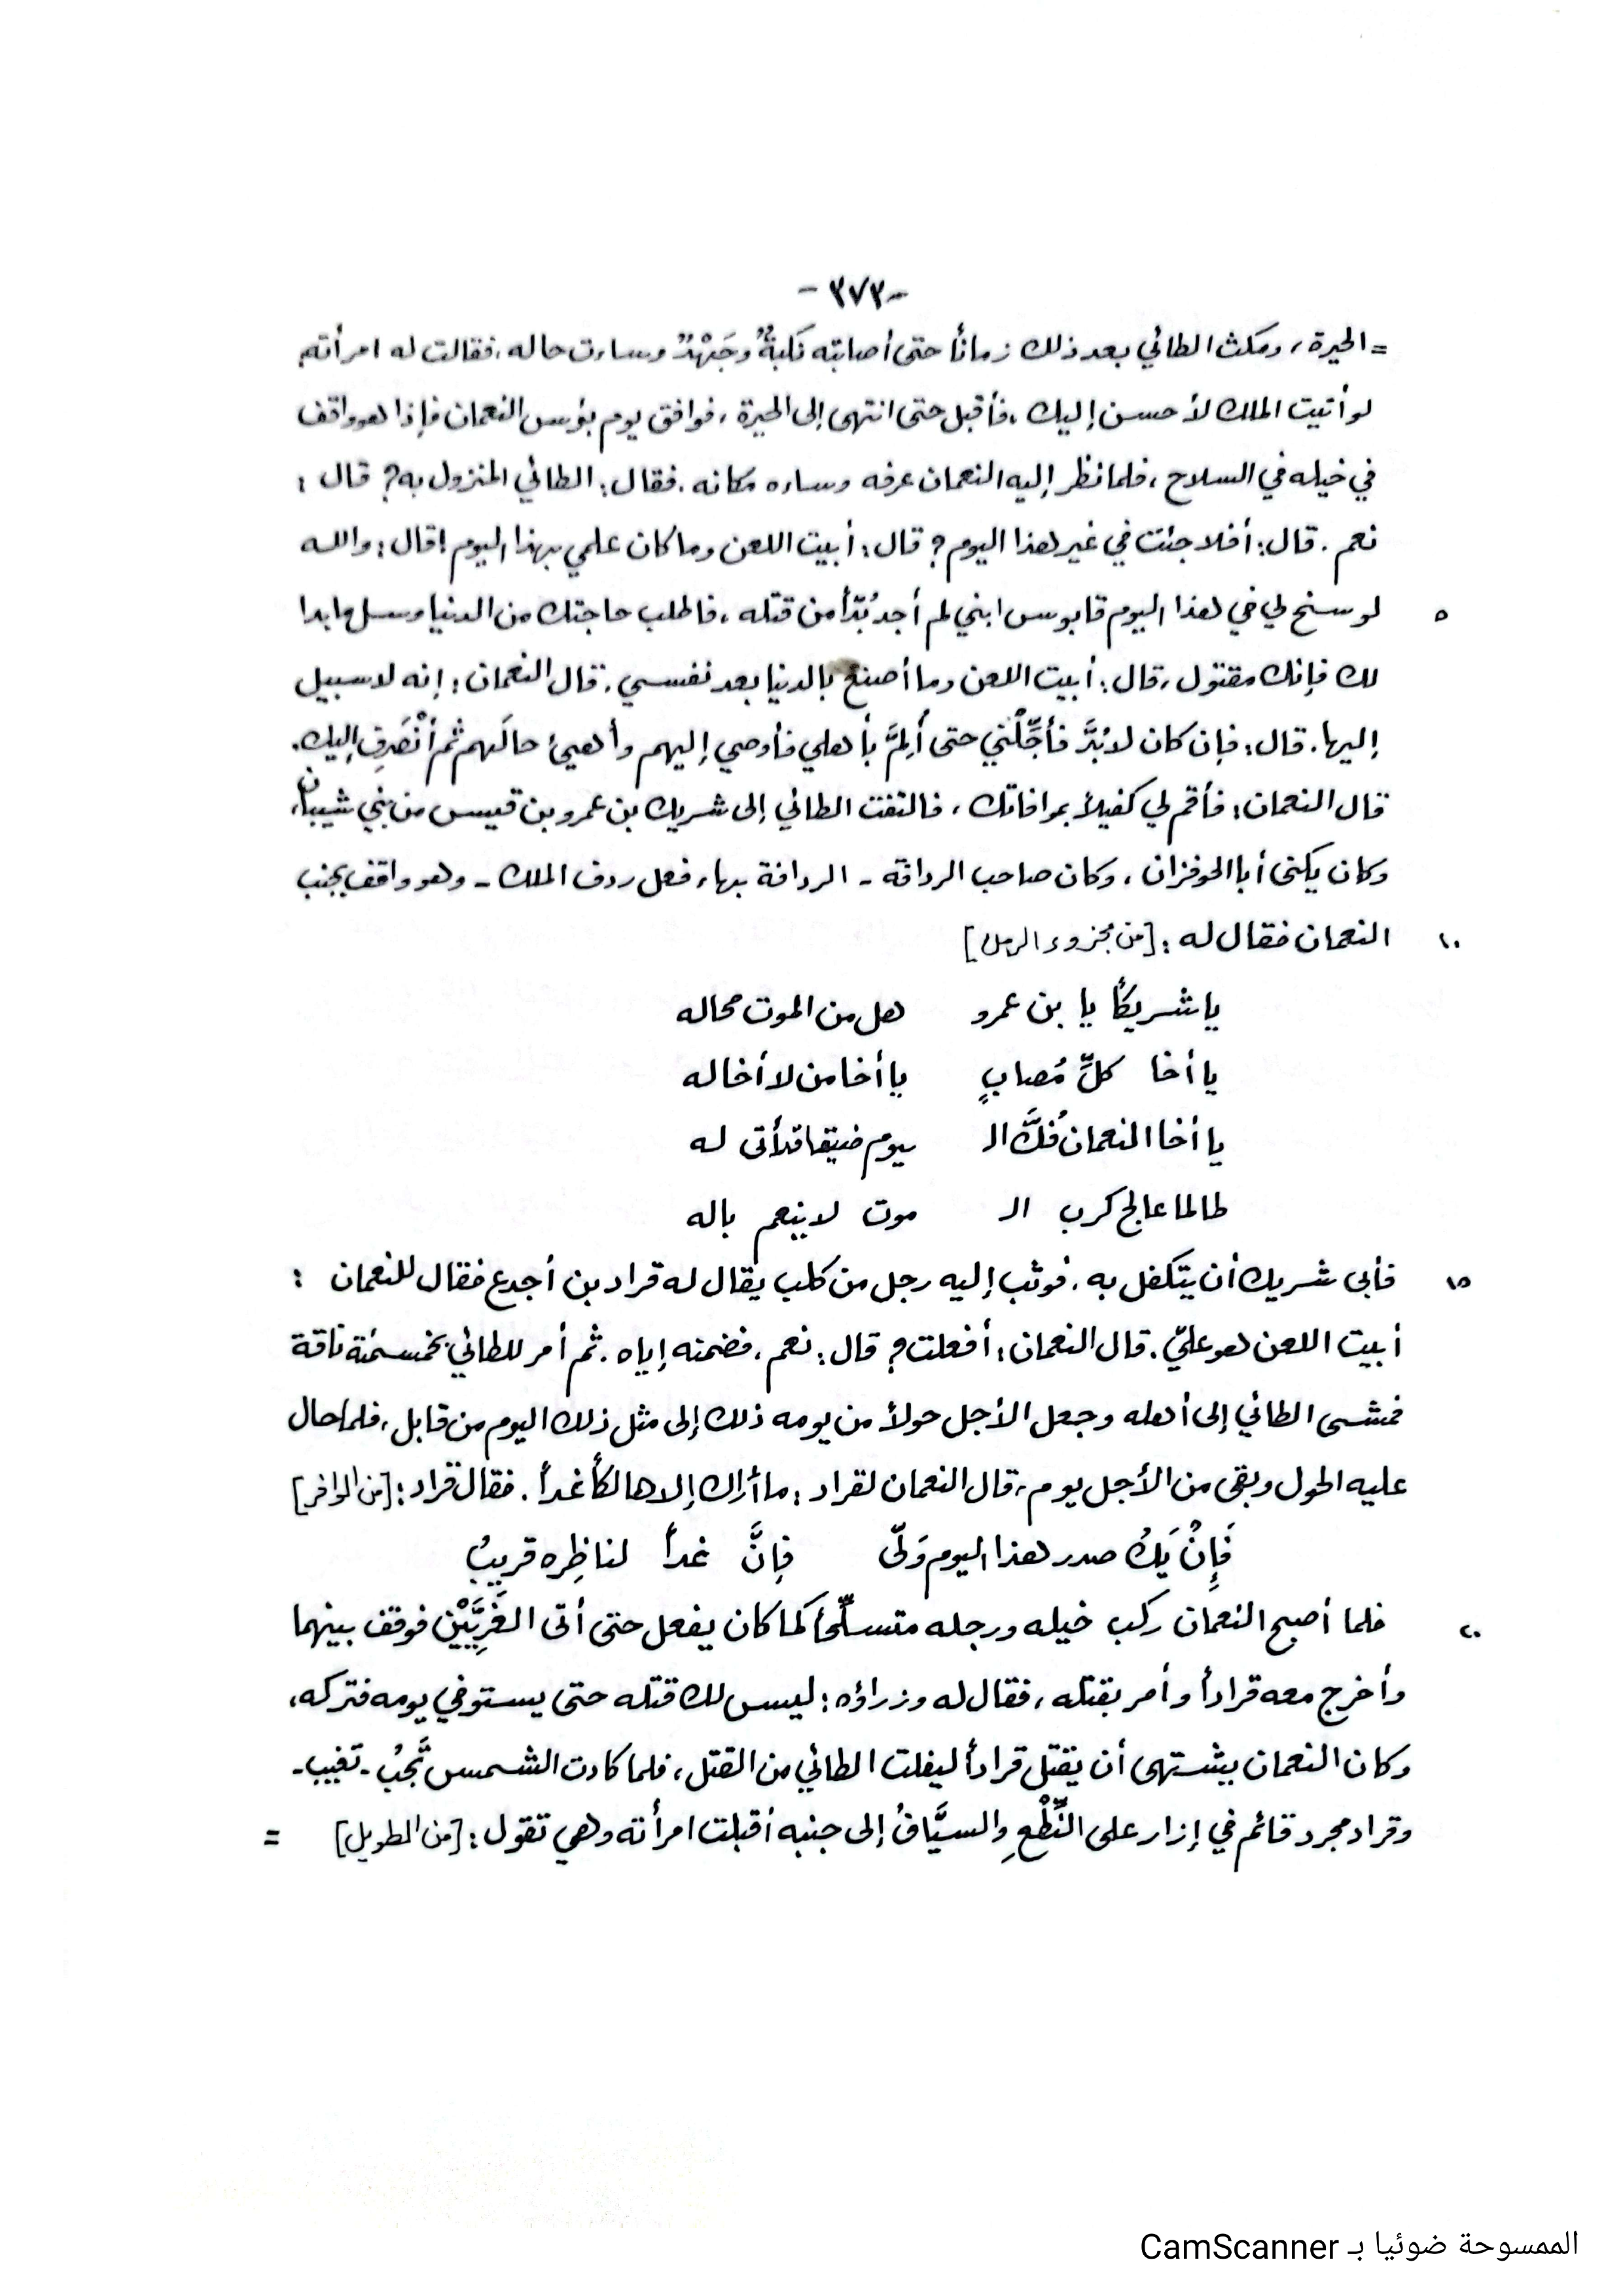 -٣٧٣-
= الحيرة، ومكث الطائي بعد ذلك زمانًا حتى أصابته نَكبةٌ وجَهْدٌ وساءت حاله. فقالت له امرأته
لو أتيت الملك لأحسن إليك، فأقبل حتى انتهى إلى الحيرة، فوافق يوم بؤس النعمان فإذا هو واقف
في خيله في السلاح، فلما نظر إليه النعمان عرفه وساءه مكانه. فقال: الطائي المنزول به؟ قال:
نعم. قال: أفلا جئت في غير هذا اليوم؟ قال: أبيت اللعن وما كان علمي بهذا اليوم! قال: والله
٥ لو سنح لي في هذا اليوم قابوس ابني لم أجد بُدّاً من قتله، فاطلب حاجتك من الدنيا وسل ما بدا
لك فإنك مقتول، قال: أبيت اللعن وما أصنع بالدنيا بعد نفسي. قال النعمان: إنه لا سبيل
إليها. قال: فإن كان لا بُدَّ فأجِّلْني حتى أُلِمَّ بأهلي فأوصي إليهم وأهيئ حالَهم ثم أنْصَرِف إليك.
قال النعمان: فأقم لي كفيلاً بموافاتك، فالتفت الطائي إلى شريك بن عمرو بن قيس من بني شيبان،
وكان يكنى أبا الحوفزان، وكان صاحب الردافة - الردافة بهاء فعل ردف الملك - وهو واقف بجنب
١٠ النعمان فقال له: [من مجزوء الرمل]
يا شريكاً يا بن عمرو هل من الموت محاله
يا أخا كلِّ مُصابٍ يا أخا من لا أخا له
يا أخا النعمان فُكَّ الـ ـيوم ضيفا قد أتى له
طالما عالج كرب الـ ـموت لا ينعم باله
١٥ فأبى شريك أن يتكفل به. فوثب إليه رجل من كلب يقال له قراد بن أجدع فقال للنعمان :
أبيت اللعن هو عليّ. قال النعمان: أفعلت؟ قال: نعم، فضمنه إياه. ثم أمر للطائي بخمسمئة ناقة
فمشى الطائي إلى أهله وجعل الأجل حولاً من يومه ذلك إلى مثل ذلك اليوم من قابل، فلما حال
عليه الحول وبقي من الأجل يوم، قال النعمان لقراد: ما أراك إلا هالكاً غداً. فقال قراد: [من الوافر]
فَإِنْ يَكُ صدر هذا اليوم وَلّى فإنَّ غداً لناظِره قريبُ
٢٠ فلما أصبح النعمان ركب خيله ورجله متسلِّحاً كما كان يفعل حتى أتى الغَرِيَّيْن فوقف بينهما
وأخرج معه قراداً وأمر بقتله، فقال له وزراؤه: ليس لك قتله حتى يستوفي يومه فتركه،
وكان النعمان يشتهي أن يقتل قراداً ليفلت الطائي من القتل، فلما كادت الشمس تَجُبُ - تغيب -
وقراد مجرد قائم في إزار على النِّطْعِ والسيَّافُ إلى جنبه أقبلت امرأته وهي تقول: [من الطويل] =
الممسوحة ضوئيا بـ CamScanner